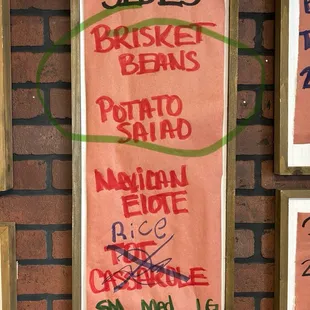 SIDES
BRISKET
BEANS
POTATO
SALAD
MEXICAN
ELOTE
RICE
TOT
CASSAROLE
SM MED LG